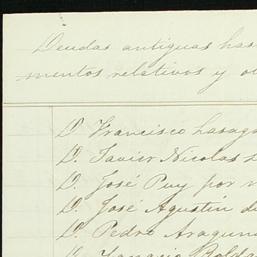 Deudas antiguas has
mentos relativos y ot
D. Francisco Lasaga
D. Javier Nicolas
D. José Puy por
D. José Agustin de
D. Pedro
D. Ignacio